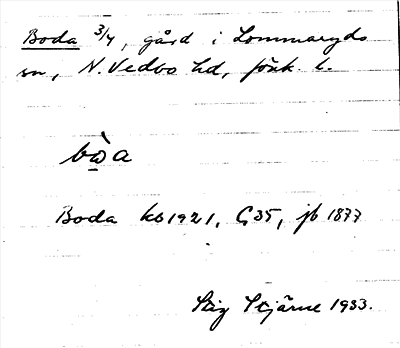 Boda 3/4, gård i Lommaryds
sn, N. Vedbo hd, Jönk. l.
bωa
Boda kb 1921, G35, jb 1877
Stig Stjärne 1933.